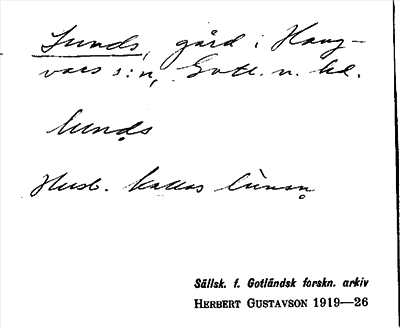 Lunds, gård i Hang-
vars s:n, Gotl. n. hd.
lunds
Husb. kallas lúnsn
Sällsk. f. Gotländsk forskn. arkiv
HERBERT GUSTAVSON 1919—26